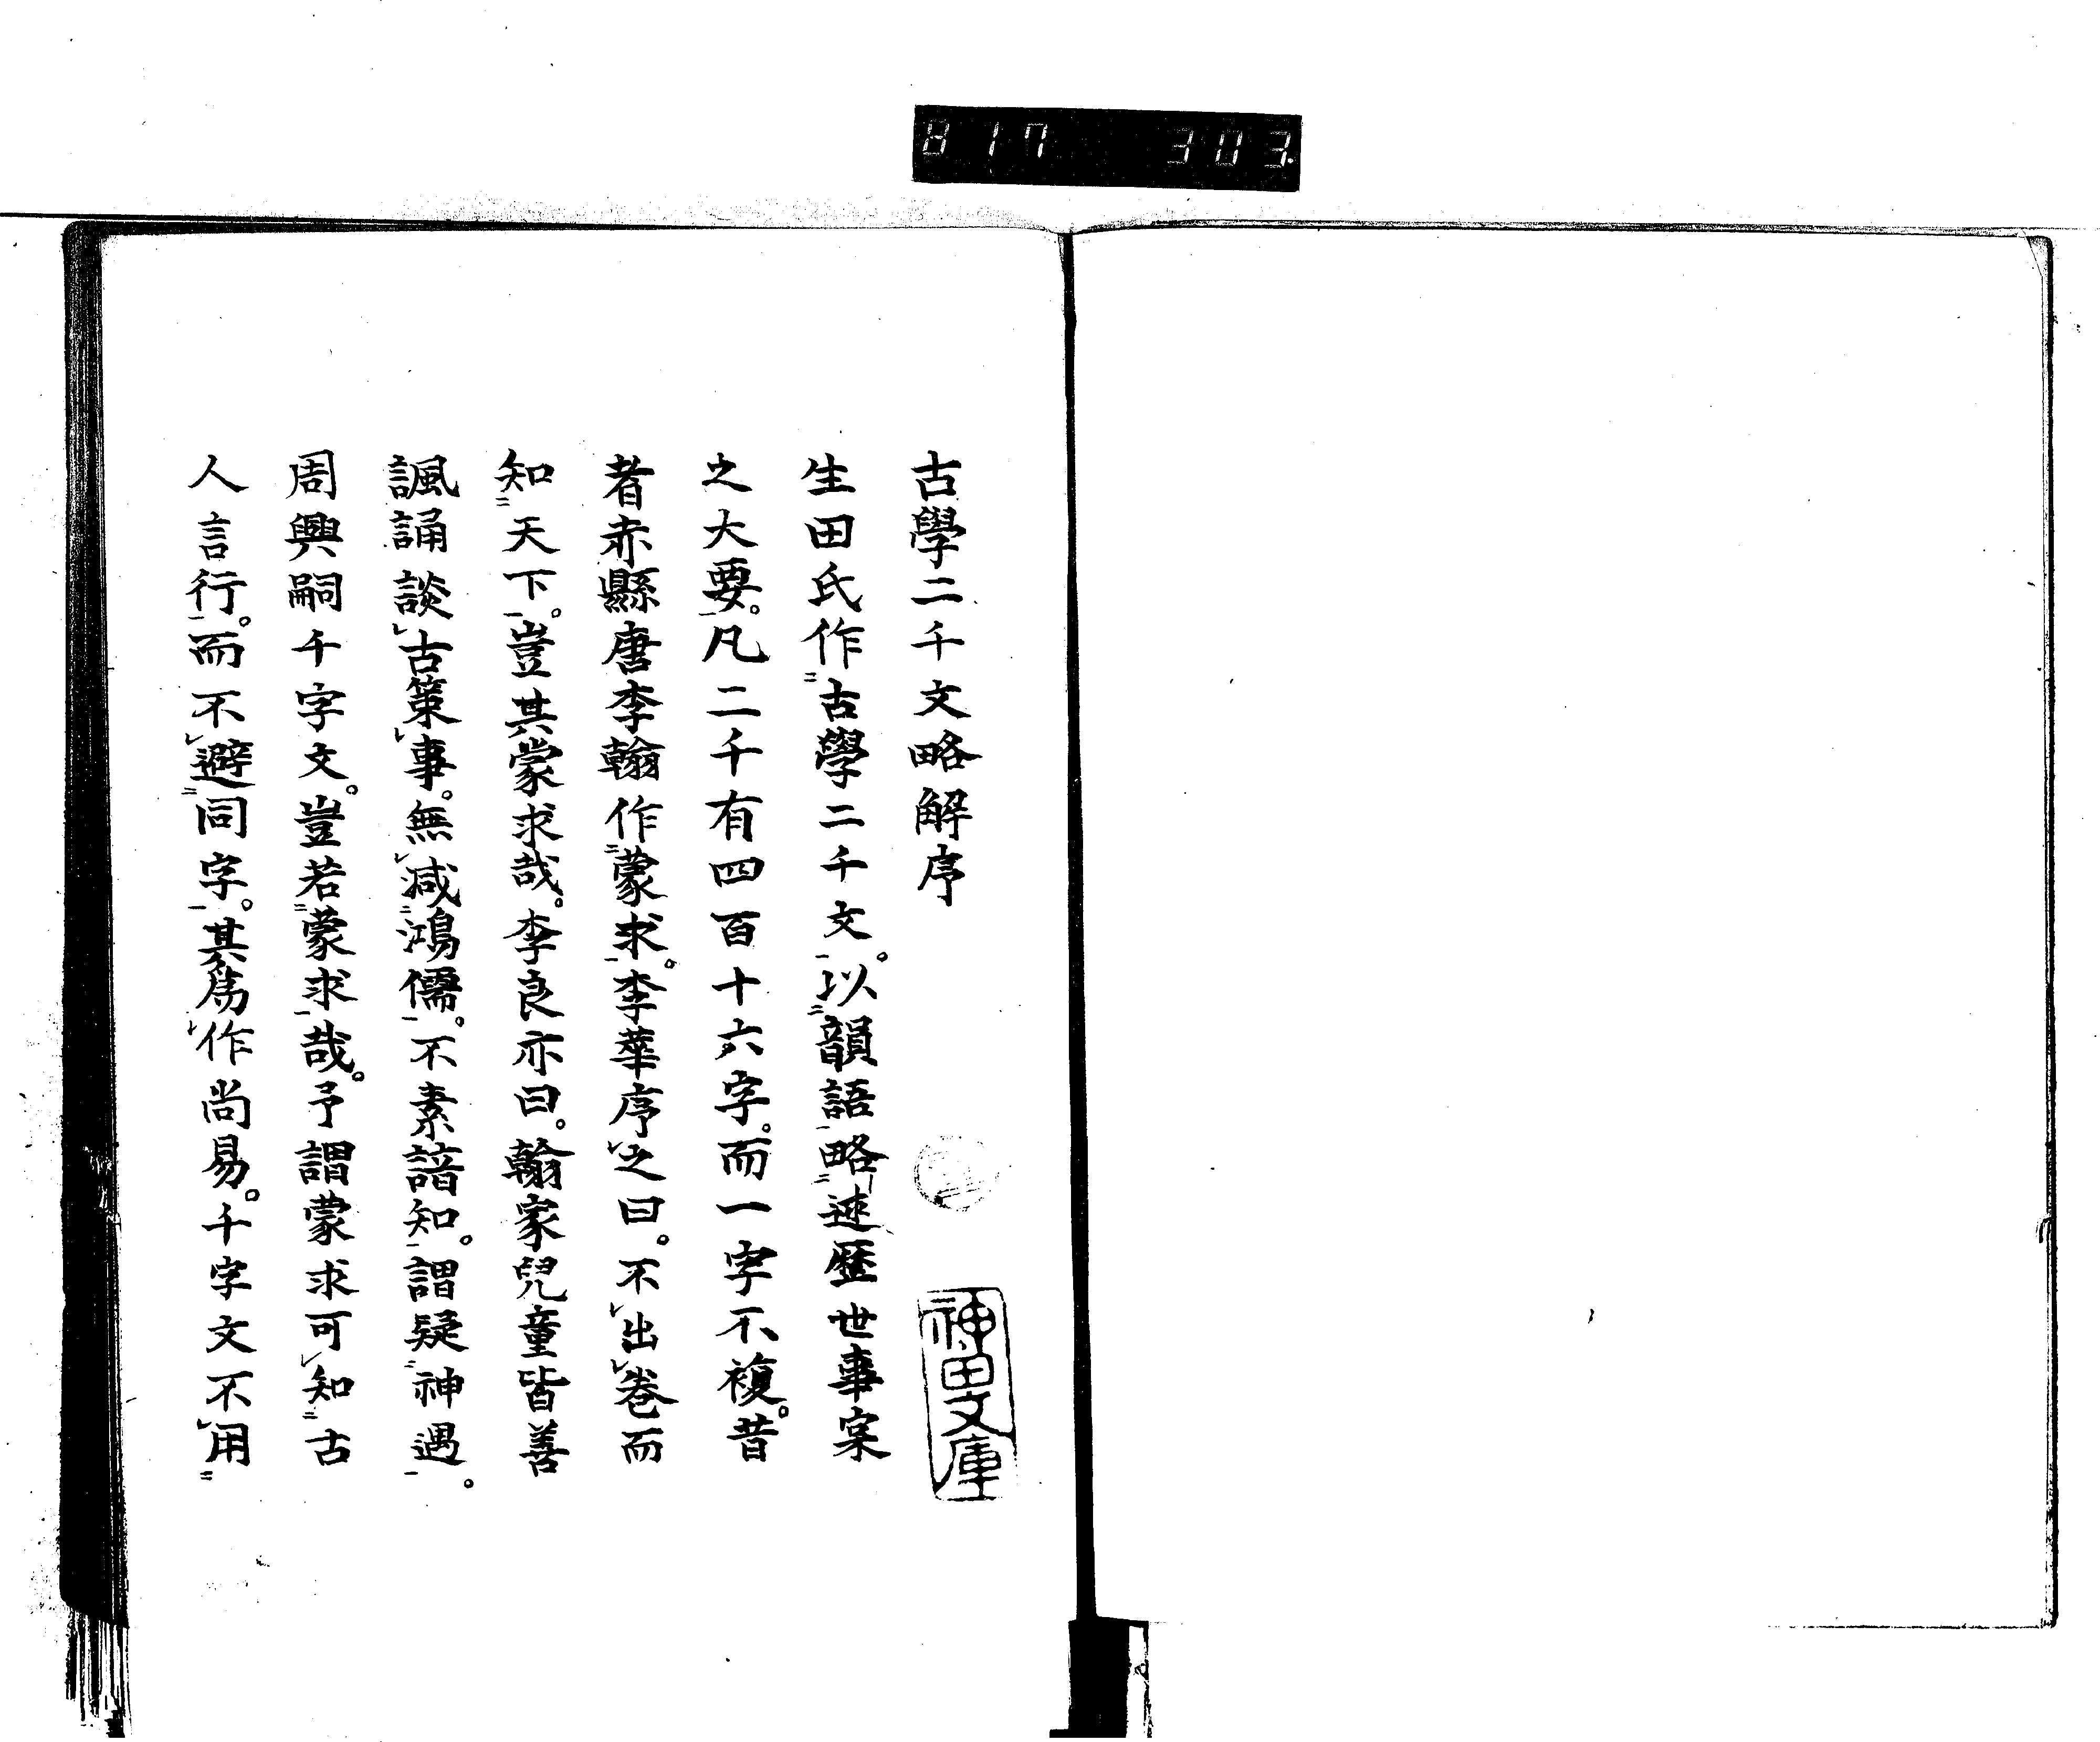 817 303.
古學二千文略解序
神田文庫
生田氏作古學二千文。以韻語略述歷世事案
之大要。凡二千有四百十六字。而一字不複。昔
者赤縣唐李翰作蒙求。李華序之曰。不出卷而
知天下。豈其蒙求哉。李良亦曰。翰家兒童皆善
諷誦談古策事。無減鴻儒。不素諳知。謂疑神遇。
周興嗣千字文。豈若蒙求哉。予謂蒙求可知古
人言行。而不避同字。其為作尚易。千字文不用